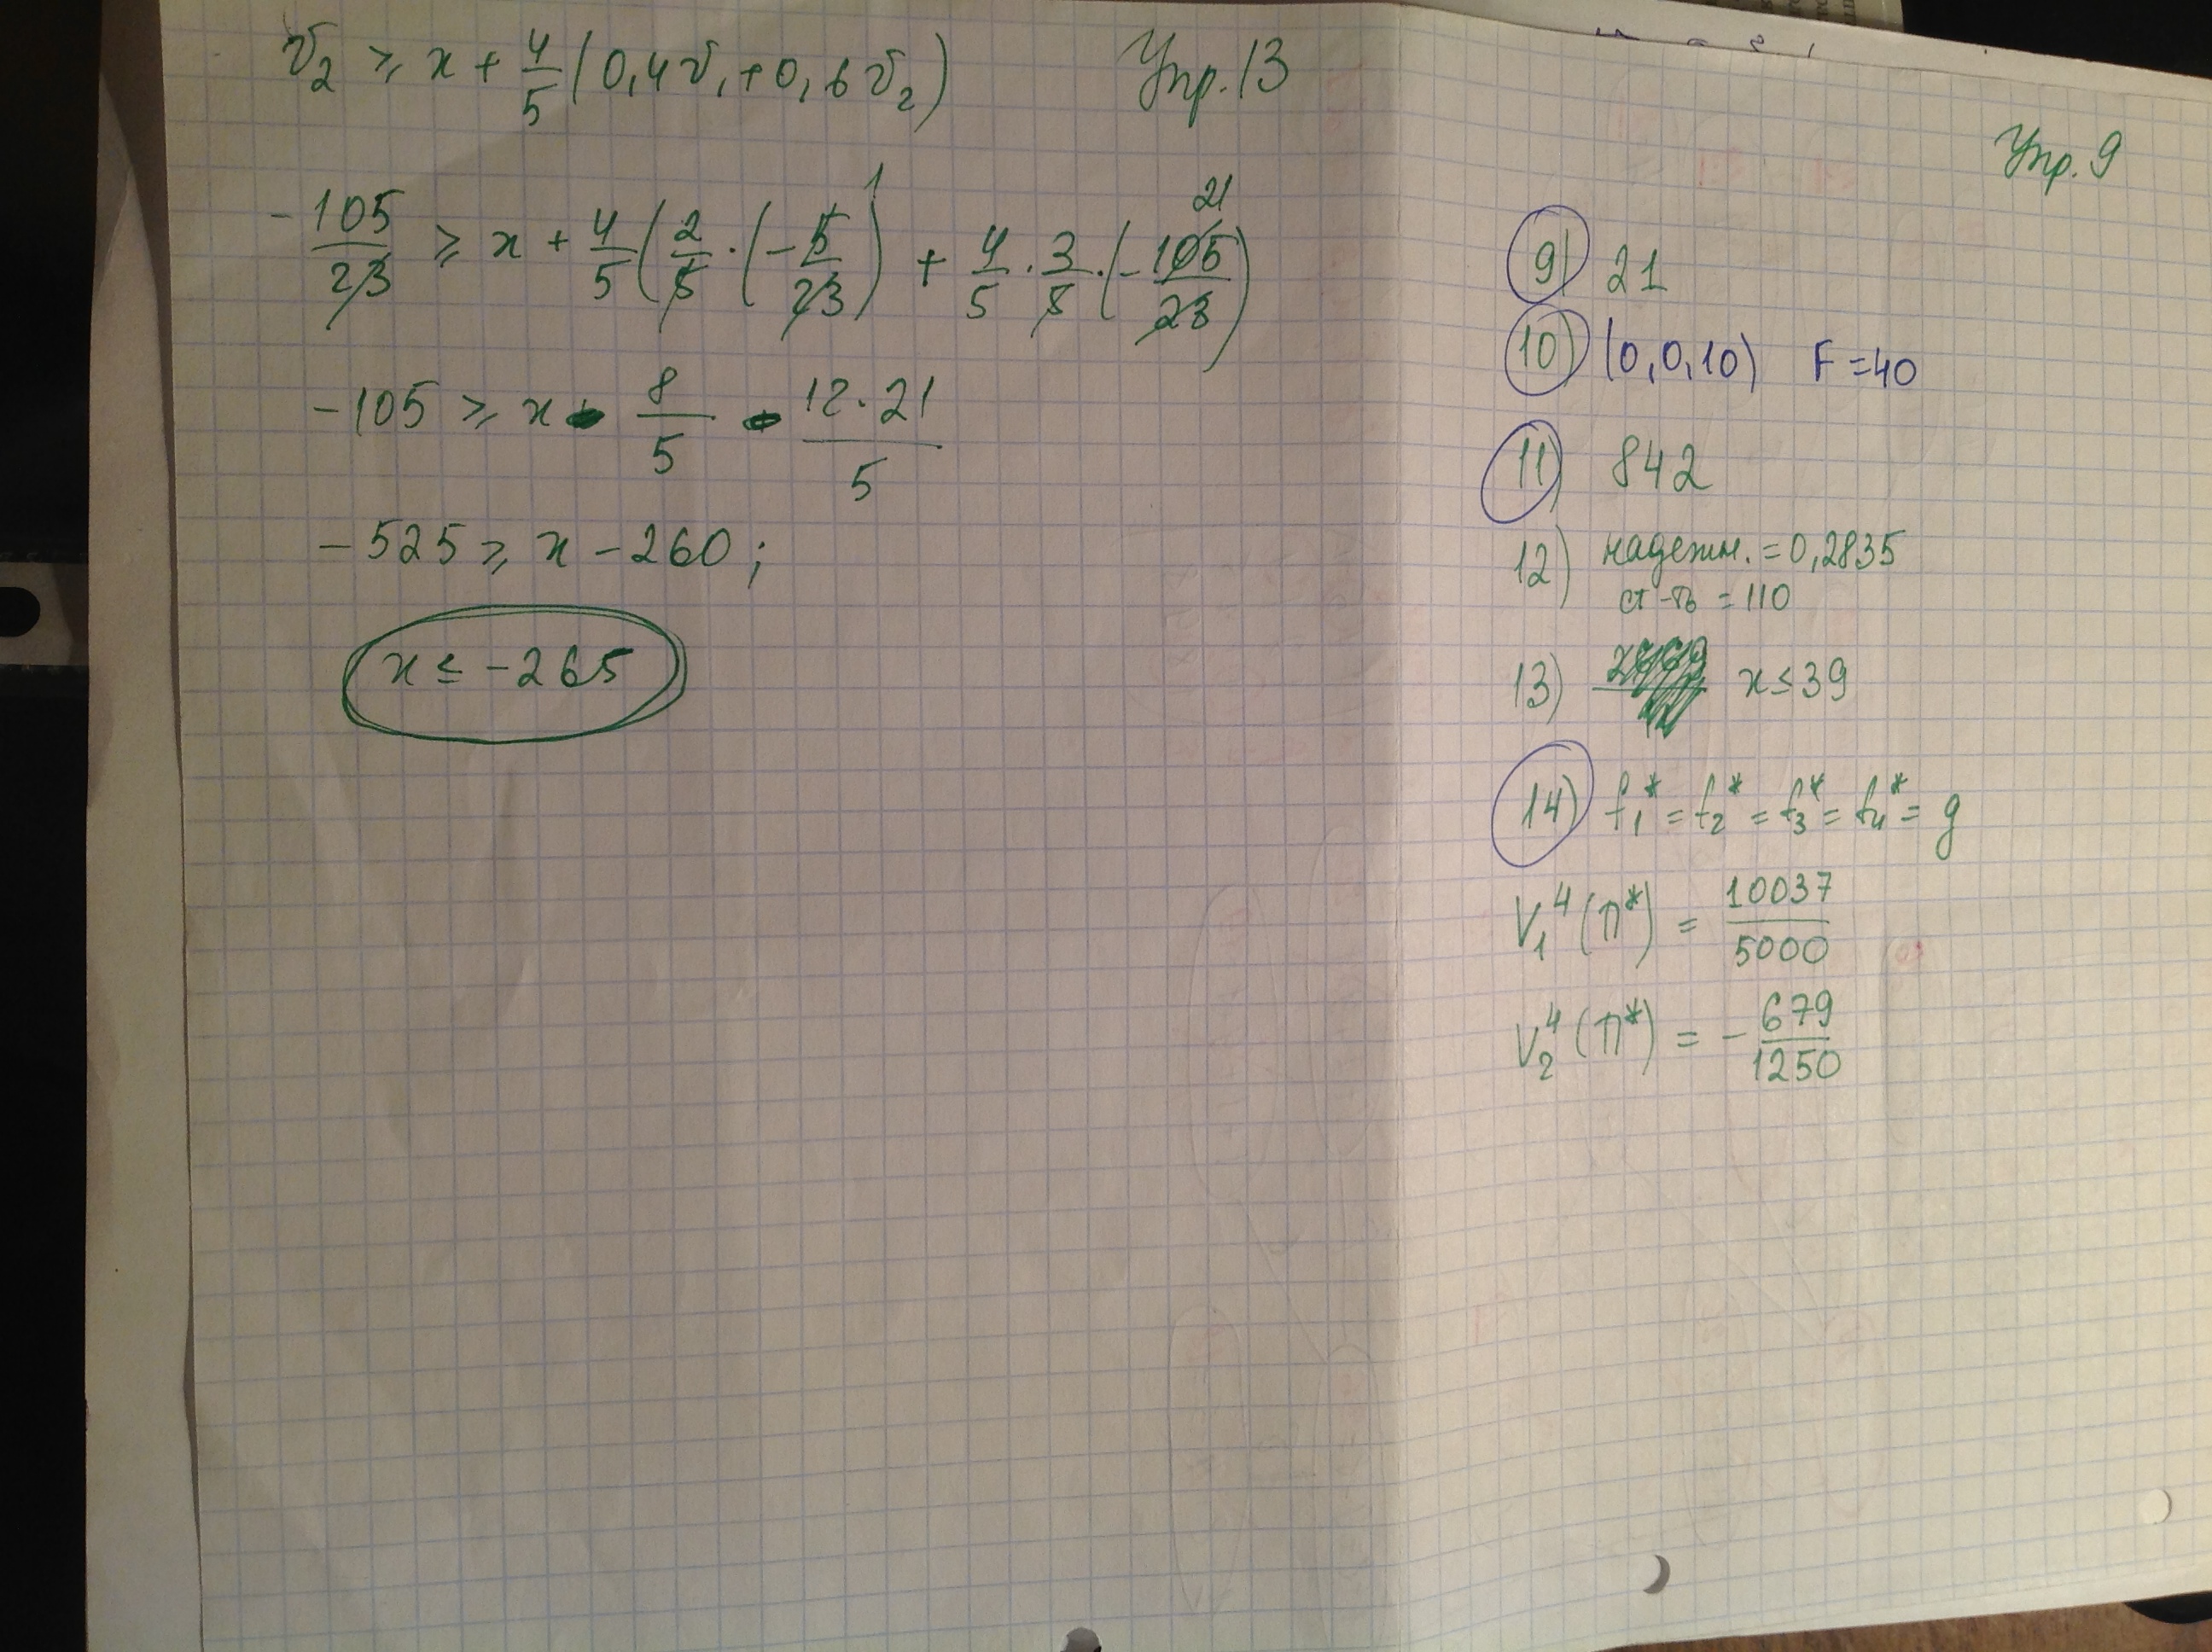 v₂ ≥ x + 4/5 (0,4v₁ + 0,6v₂)
Упр. 13
-105/23 ≥ x + 4/5 (2/5 · (-5/23) + 4/5 · 3/5 · (-105/23)
1
21
-105 ≥ x - 8/5 - 12·21/5
-525 ≥ x - 260 ;
x ≤ -265
Упр. 9
9) 21
10) (0,0,10) F = 40
11) 842
12) надежн. = 0,2835
ст-ть = 110
13) x ≤ 39
14) f₁* = f₂* = f₃* = f₄* = g
V₁⁴(π*) = 10037/5000
V₂⁴(π*) = - 679/1250